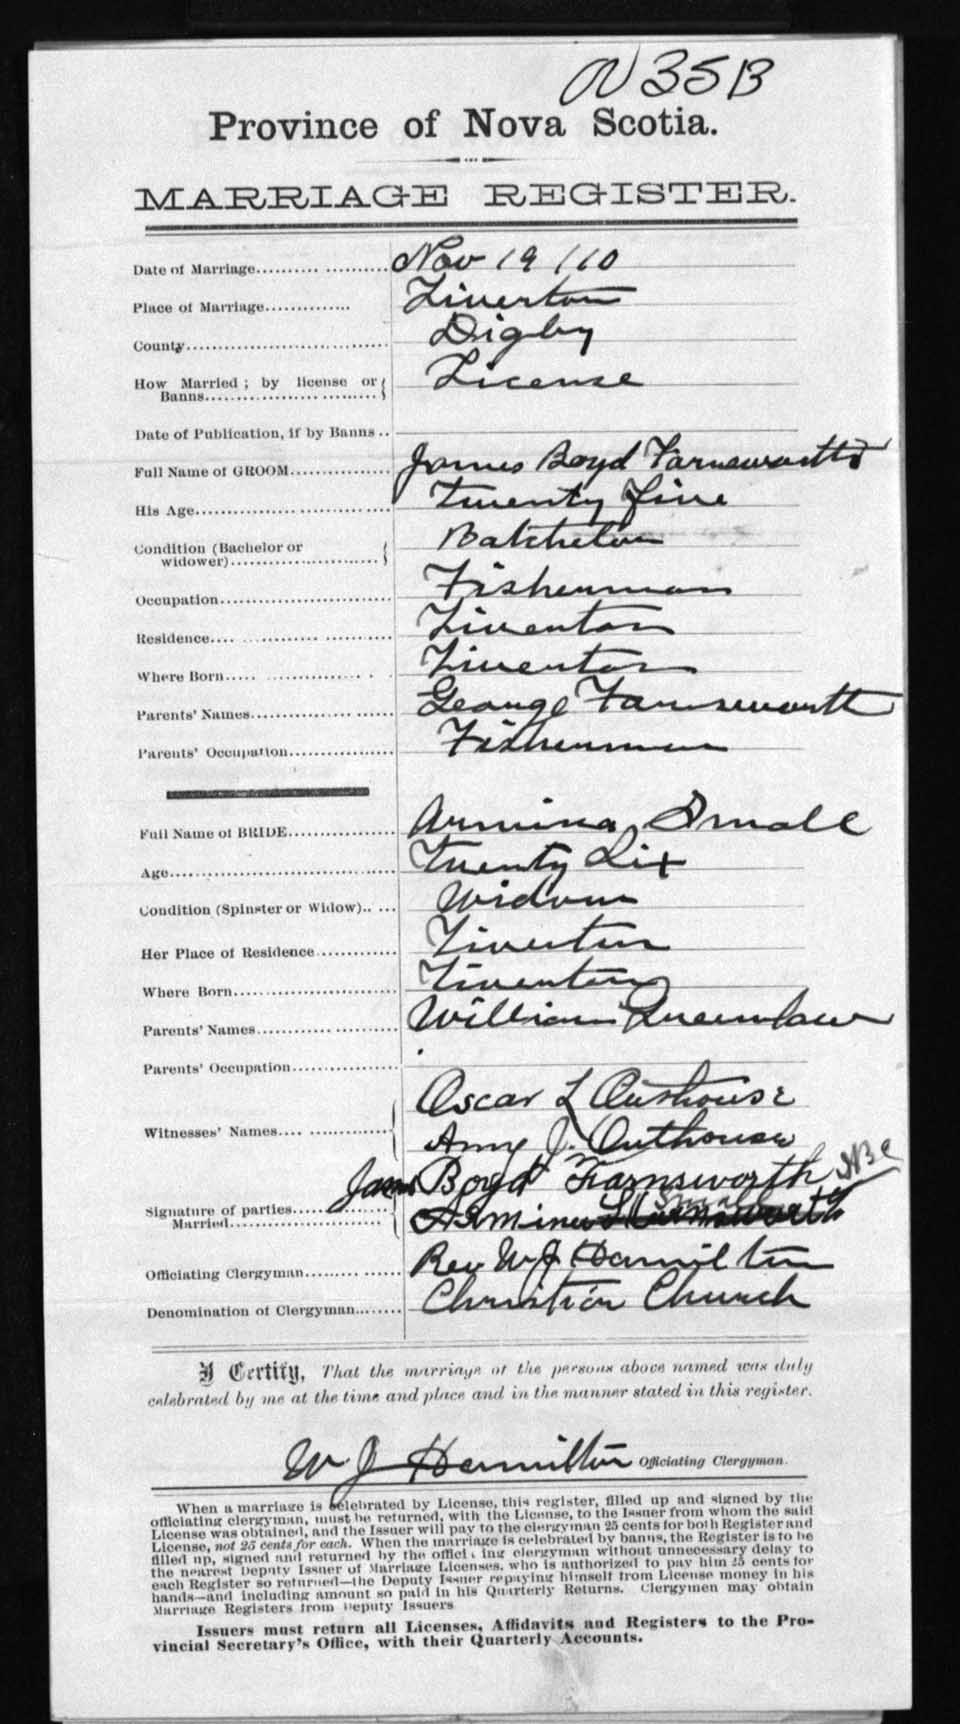 N 35 B
Province of Nova Scotia.
MARRIAGE REGISTER.
Date of Marriage.......... Nov 19 / 10
Place of Marriage............. Tiverton
County.................................. Digby
How Married ; by license or Banns........................ License
Date of Publication, if by Banns ..
Full Name of GROOM................. James Boyd Farnsworth
His Age.................................. Twenty Five
Condition (Bachelor or widower)........................ Batchelour
Occupation............................. Fisherman
Residence.... ......................... Tiverton
Where Born..... ................... . . Tiverton
Parents' Names........................ George Farnsworth
Parents' Occupation.................. Fisherman
Full Name of BRIDE.................. Armina Small
Age...................................... Twenty Six
Condition (Spinster or Widow).. .... Widow
Her Place of Residence............. Tiverton
Where Born............................ Tiverton
Parents' Names....................... William Greenlaw
Parents' Occupation..................
Witnesses' Names.... .............. Oscar L Outhouse
Amy J. Outhouse
Signature of parties Married.......... James Boyd Farnsworth
Armina Small
Officiating Clergyman................ Rev W J Hamilton
Denomination of Clergyman....... Christian Church
I Certify, That the marriage of the persons above named was duly
celebrated by me at the time and place and in the manner stated in this register.
W J Hamilton Officiating Clergyman.
When a marriage is celebrated by License, this register, filled up and signed by the
officiating clergyman, must be returned, with the License, to the Issuer from whom the said
License was obtained, and the Issuer will pay to the clergyman 25 cents for both Register and
License, not 25 cents for each. When the marriage is celebrated by banns, the Register is to be
filled up, signed and returned by the offici ing clergyman without unnecessary delay to
the nearest Deputy Issuer of Marriage Licenses, who is authorized to pay him 25 cents for
each Register so returned—the Deputy Issuer repaying himself from License money in his
hands—and including amount so paid in his Quarterly Returns. Clergymen may obtain
Marriage Registers from Deputy Issuers
Issuers must return all Licenses, Affidavits and Registers to the Pro-
vincial Secretary's Office, with their Quarterly Accounts.